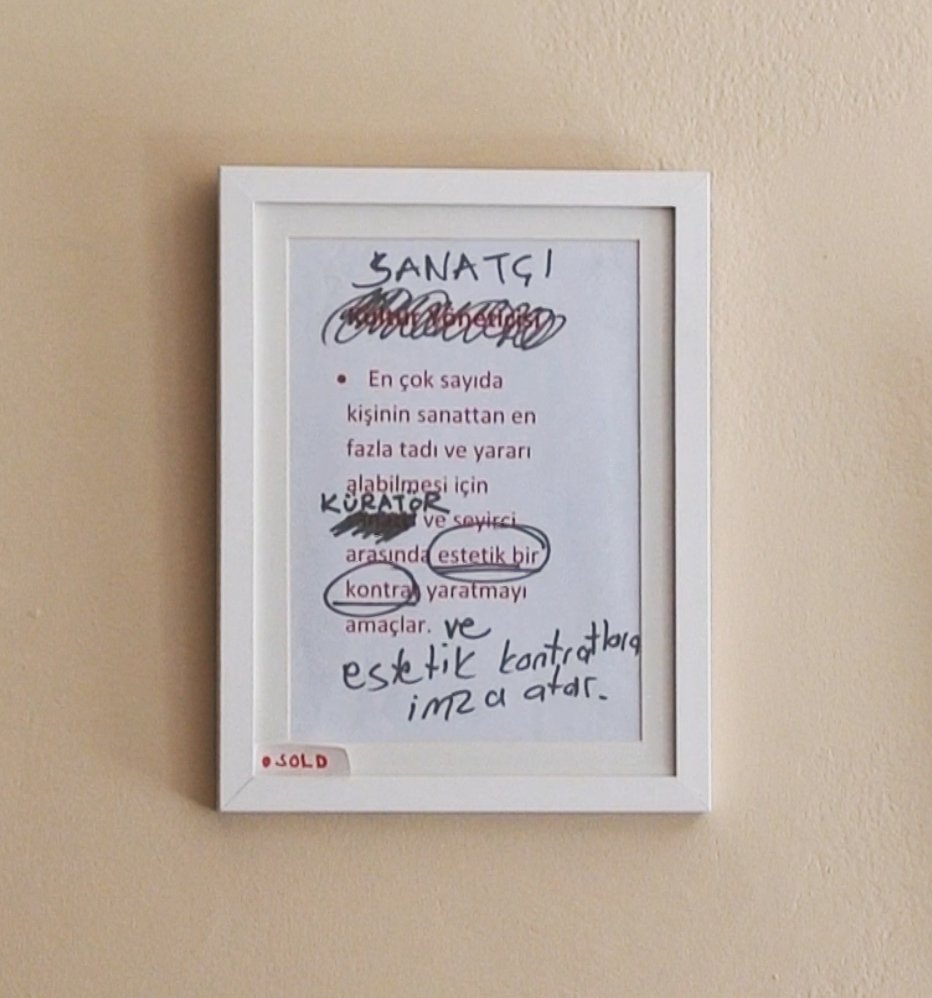 SANATÇI
Kültür Yöneticisi
• En çok sayıda
kişinin sanattan en
fazla tadı ve yararı
alabilmesi için
KÜRATÖR
ve seyirci
arasında estetik bir
kontrat yaratmayı
amaçlar. ve
estetik kontratlara
imza atar.
• SOLD